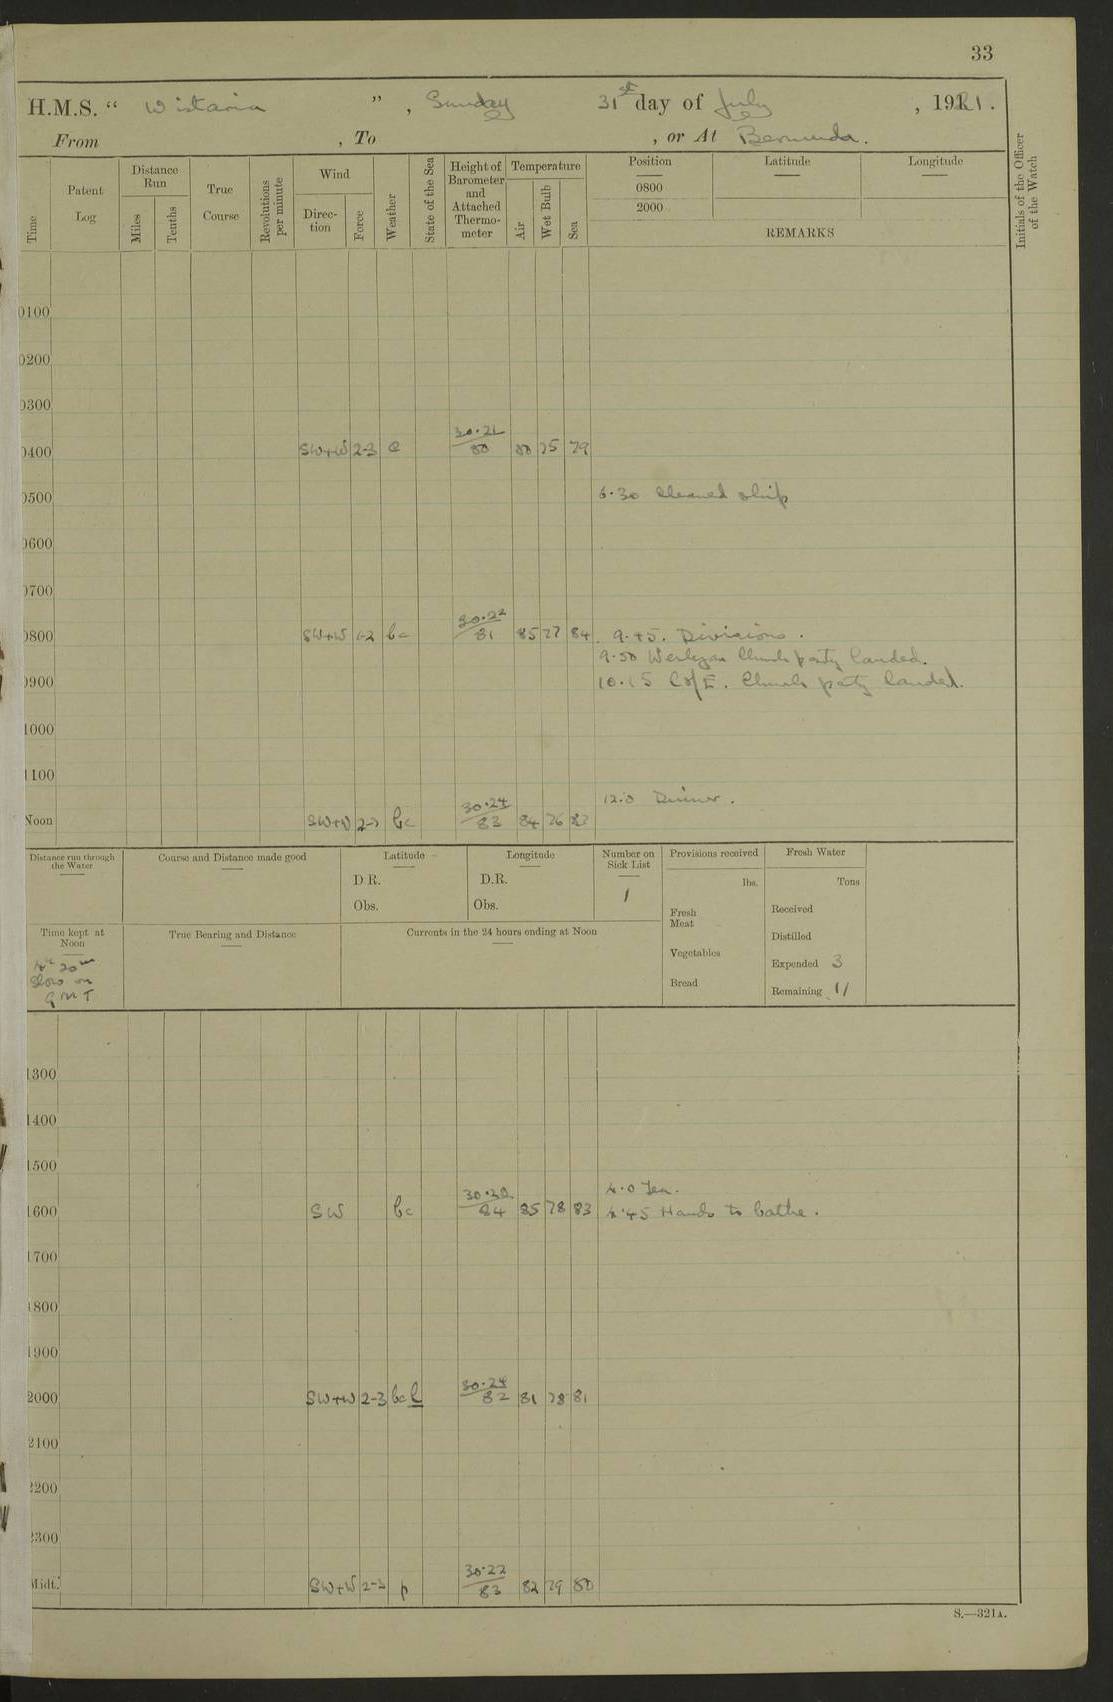 33
H.M.S. “ Wistaria ” , Sunday 31st day of July , 1921.
From , To , or At Bermuda.
Time Patent Log Distance Run Miles Tenths True Course Revolutions per minute Wind Direc-tion Force Weather State of the Sea Height of Barometer and Attached Thermo-meter Temperature Air Wet Bulb Sea Position 0800 2000 Latitude Longitude REMARKS Initials of the Officer of the Watch
0100
0200
0300
30.21
0400 SW+W 2-3 c 80 80 75 79
0500 6.30 Cleaned ship
0600
0700
30.22
0800 SW+W 1-2 bc 81 85 77 84 9.45. Divisions.
9.50 Wesleyan Church party landed.
0900 10.15 Cof E. Church party landed.
1000
1100
30.24 12.0 Dinner.
Noon SW+W 2-3 bc 83 84 76 82
Distance run through the Water Course and Distance made good Latitude Longitude Number on Sick List Provisions received Fresh Water
D.R. D.R. lbs. Tons
Obs. Obs. 1 Fresh Meat Received
Time kept at Noon True Bearing and Distance Currents in the 24 hours ending at Noon Distilled
4h 20m Vegetables Expended 3
slow on
G M T Bread Remaining 11
1300
1400
1500
30.32 4.0 Tea.
1600 SW bc 84 85 78 83 4.45 Hands to bathe.
1700
1800
1900
30.24
2000 SW+W 2-3 bcl 82 81 78 81
2100
2200
2300
30.22
Midt. SW+W 2-3 p 83 82 79 80
S.—321A.